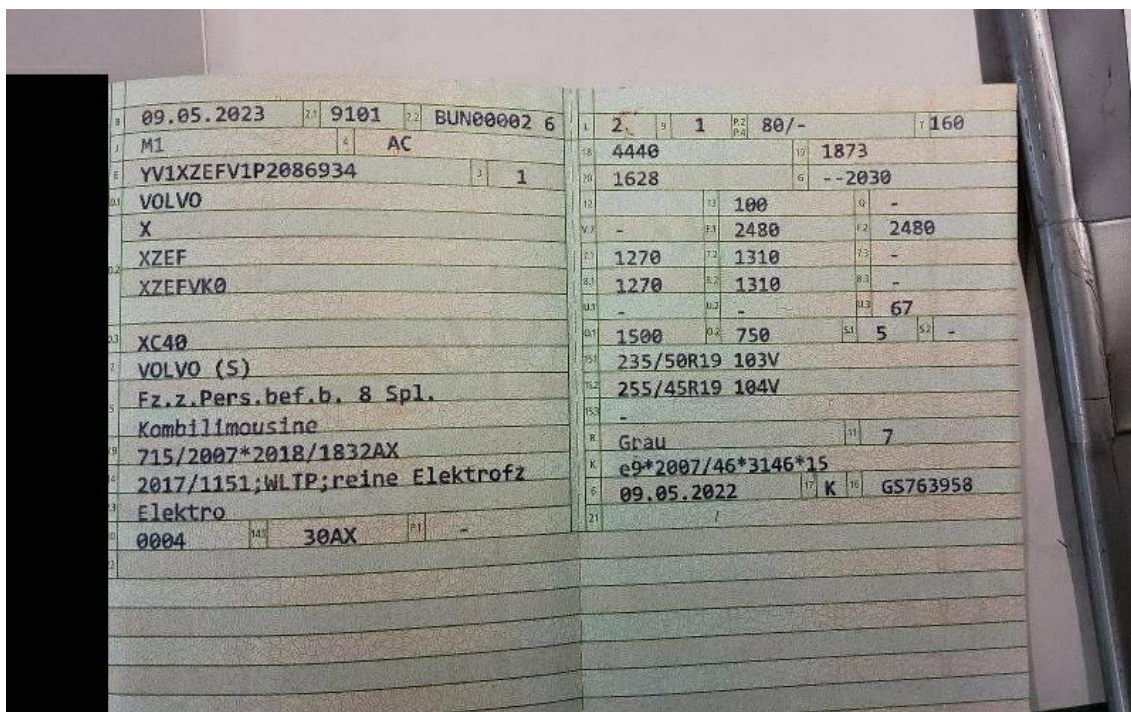 B 09.05.2023 2.1 9101 2.2 BUN00002 6
J M1 4 AC
E YV1XZEFV1P2086934 3 1
VOLVO
X
XZEF
XZEFVK0
XC40
VOLVO (S)
Fz.z.Pers.bef.b. 8 Spl.
Kombilimousine
715/2007*2018/1832AX
2017/1151;WLTP;reine Elektrofz
Elektro
0004 14.1 30AX P.1 -
L 2 9 1 P.2 P.4 80/- T 160
18 4440 19 1873
20 1628 G --2030
12 - 13 100 Q -
V.7 - F.1 2480 F.2 2480
7.1 1270 7.2 1310 7.3 -
8.1 1270 8.2 1310 8.3 -
U.1 - U.2 - U.3 67
O.1 1500 O.2 750 S.1 5 S.2 -
15.1 235/50R19 103V
15.2 255/45R19 104V
15.3 -
R Grau 11 7
K e9*2007/46*3146*15
6 09.05.2022 17 K 16 GS763958
21